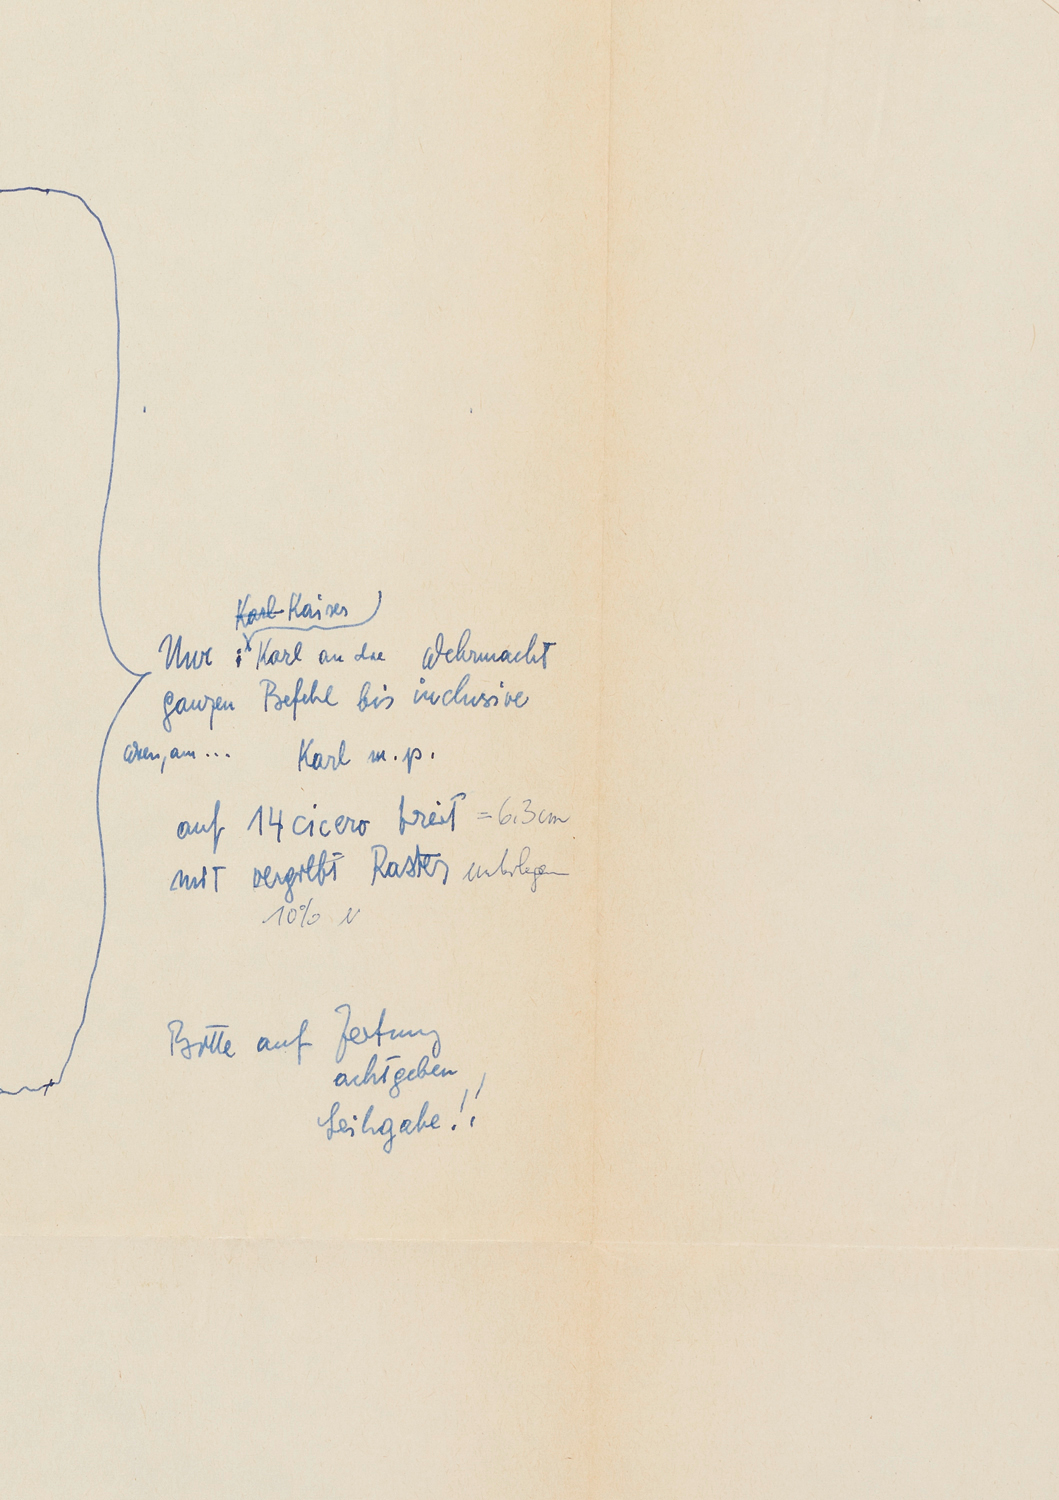 ~~Karl~~ Kaiser
Nur : Karl an die Wehrmacht
ganzen Befehl bis inclusive
Wien, am ... Karl m. p.
auf 14 cicero breit = 6,3 cm
mit vergilbt Raster unterlegen
10%
Bitte auf Zeitung
achtgeben
Leihgabe!!